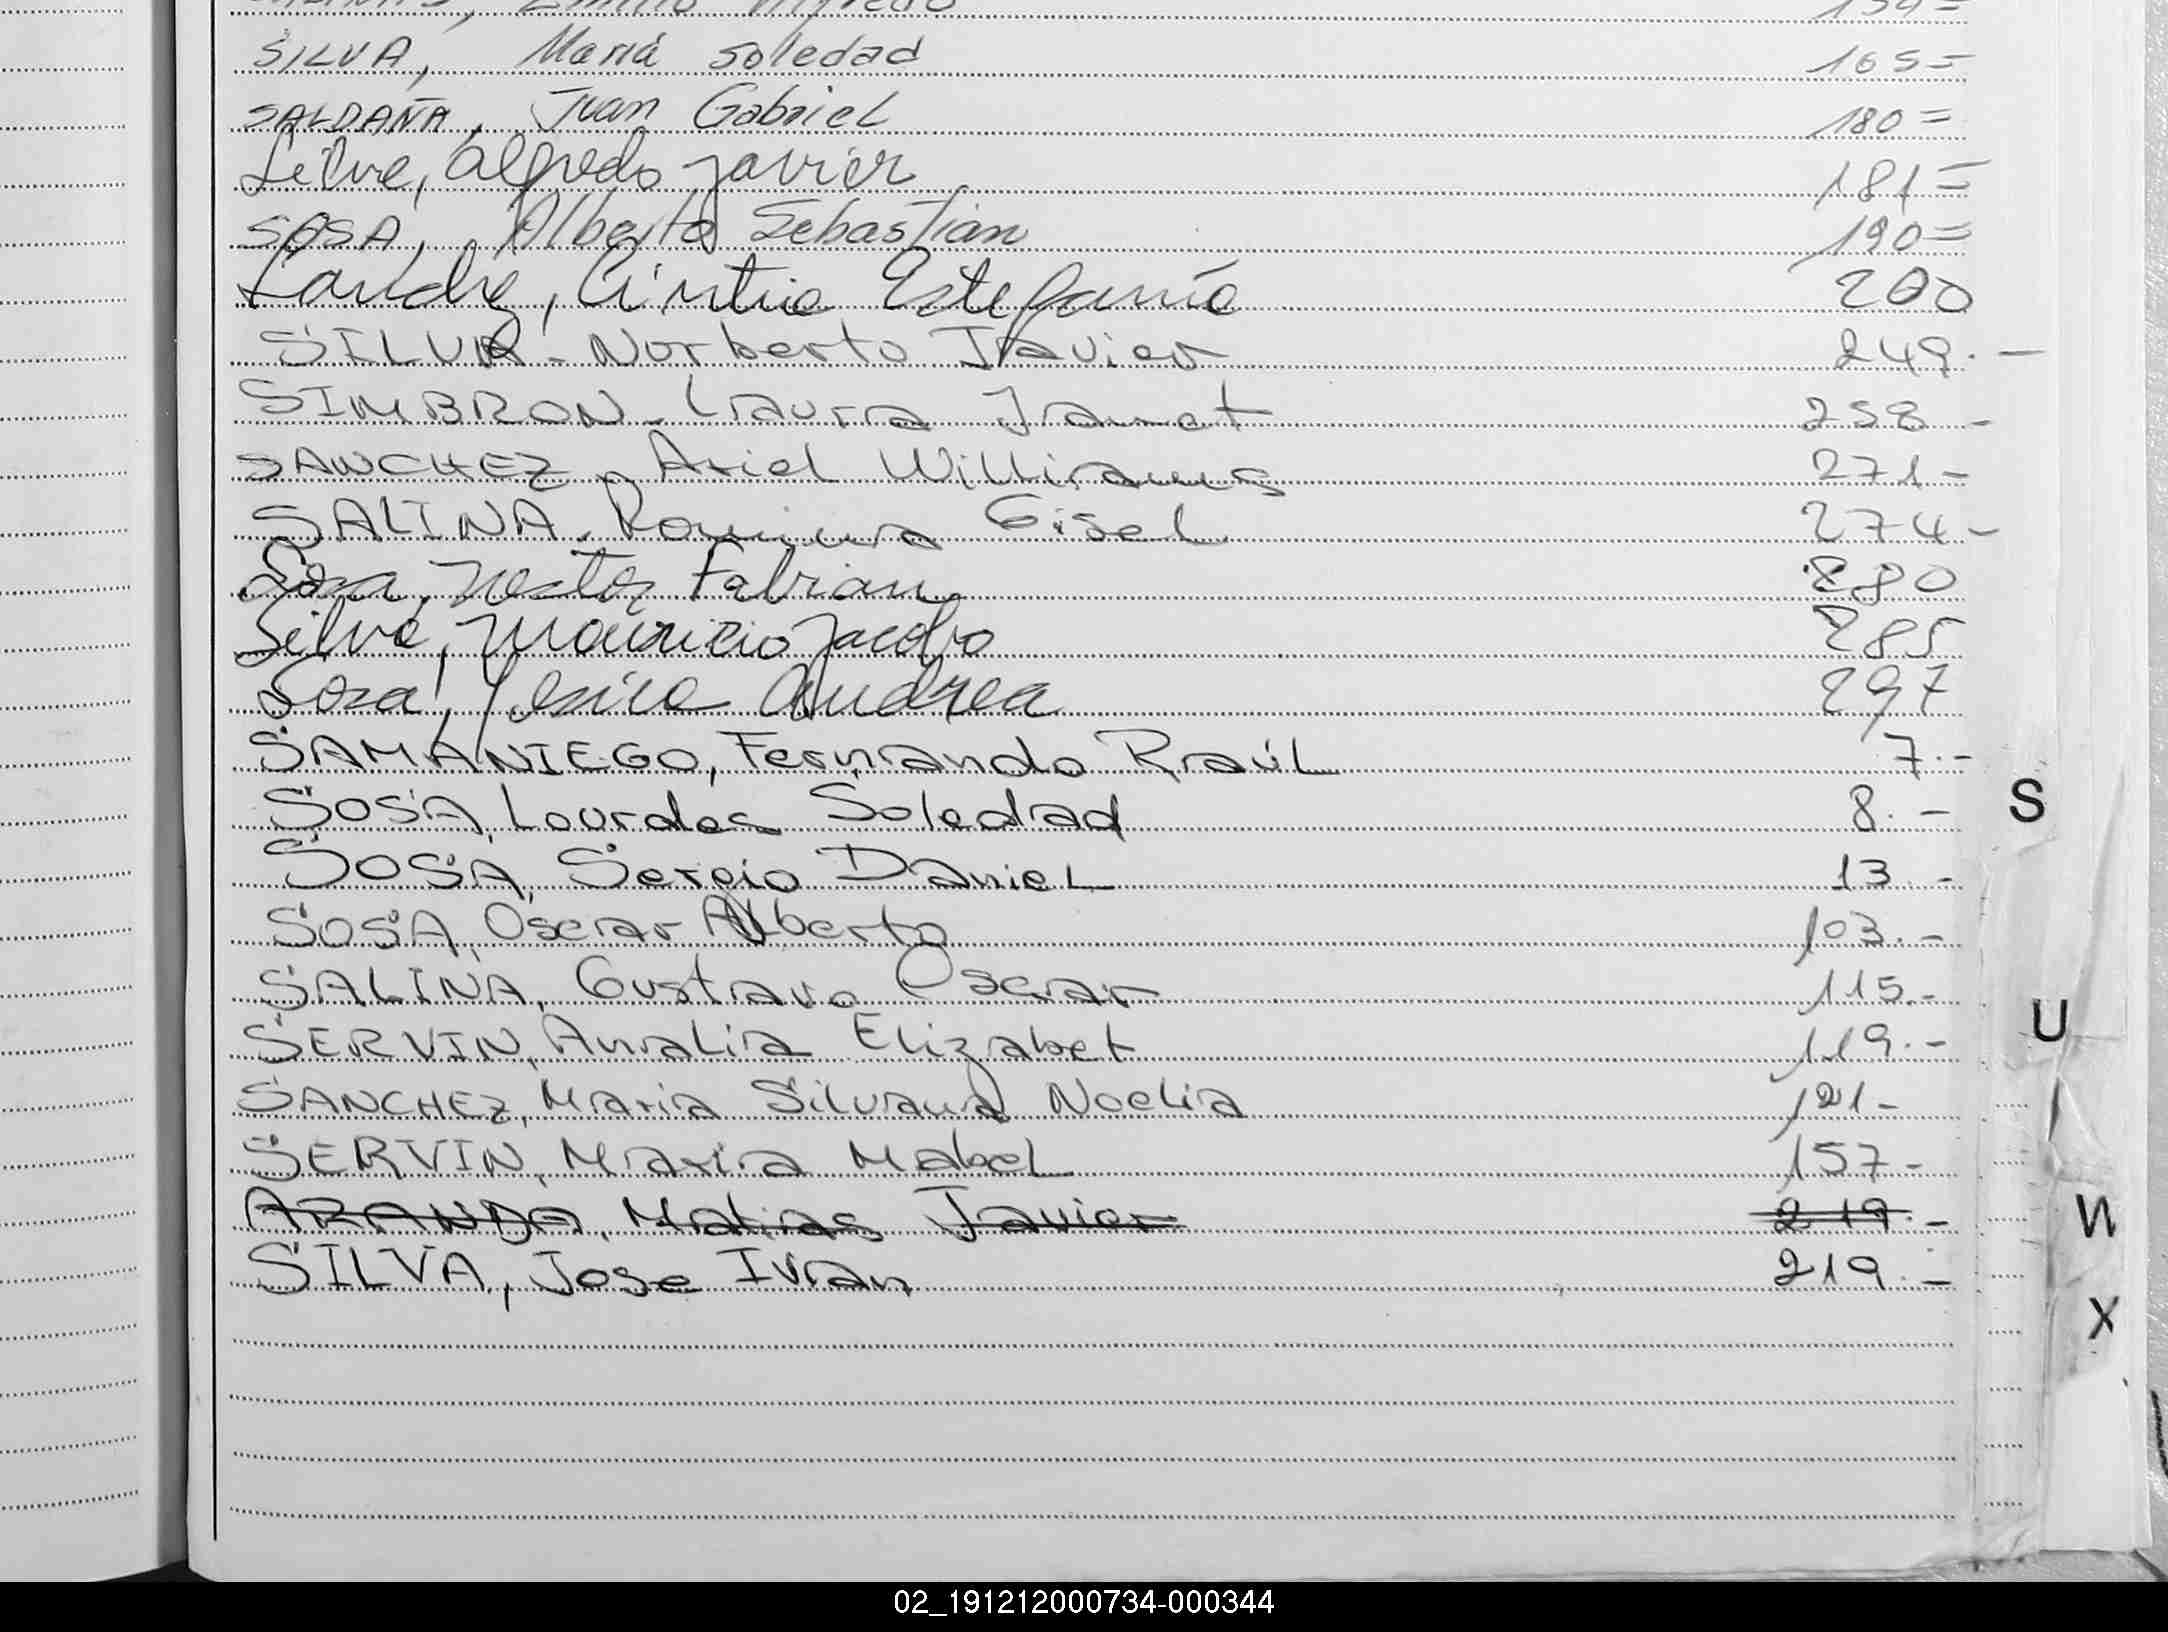 Emilio Alfredo 154=
SILVA, María Soledad 165=
SALDAÑA, Juan Gabriel 180=
Silva, Alfredo Javier 181=
SOSA, Alberto Sebastián 190=
Sanchez, Cintia Estefanía 200
SILVA - Norberto Javier 249.-
SIMBRON - Laura Janet 258-
SANCHEZ, Ariel Williams 271-
SALINA, Romina Gisel 274-
Sosa, Nestor Fabian 280
Silva, Mauricio Jacobo 285
Sosa, Yesica Andrea 297
SAMANIEGO, Fernando Raúl 7.-
SOSA, Lourdes Soledad 8.-
SOSA, Sergio Daniel 13.-
SOSA, Oscar Alberto 103.-
SALINA, Gustavo Oscar 115.-
SERVIN, Analia Elizabet 119.-
SANCHEZ, Maria Silvana Noelia 121-
SERVIN, Maria Mabel 157-
ARANDA, Matias Javier 219.-
SILVA, Jose Ivan 219.-
S
U
W
X
02_191212000734-000344